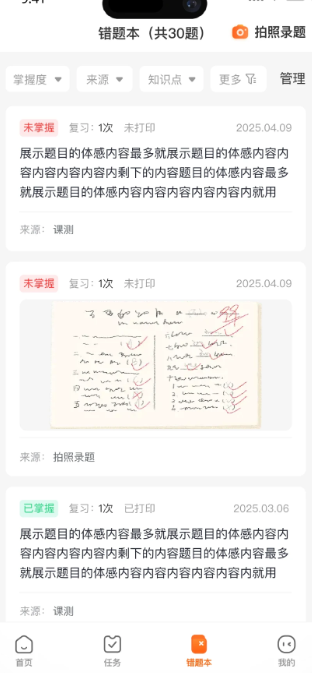 错题本（共30题）
拍照录题
掌握度 来源 知识点 更多 管理
未掌握 复习：1次 未打印 2025.04.09
展示题目的体感内容最多就展示题目的体感内容内
容内容内容内容内剩下的内容题目的体感内容最多
就展示题目的体感内容内容内容内容内容内就用
来源： 课测
未掌握 复习：1次 未打印 2025.04.09
来源： 拍照录题
已掌握 复习：1次 已打印 2025.03.06
展示题目的体感内容最多就展示题目的体感内容内
容内容内容内容内剩下的内容题目的体感内容最多
就展示题目的体感内容内容内容内容内容内就用
来源： 课测
首页 任务 错题本 我的